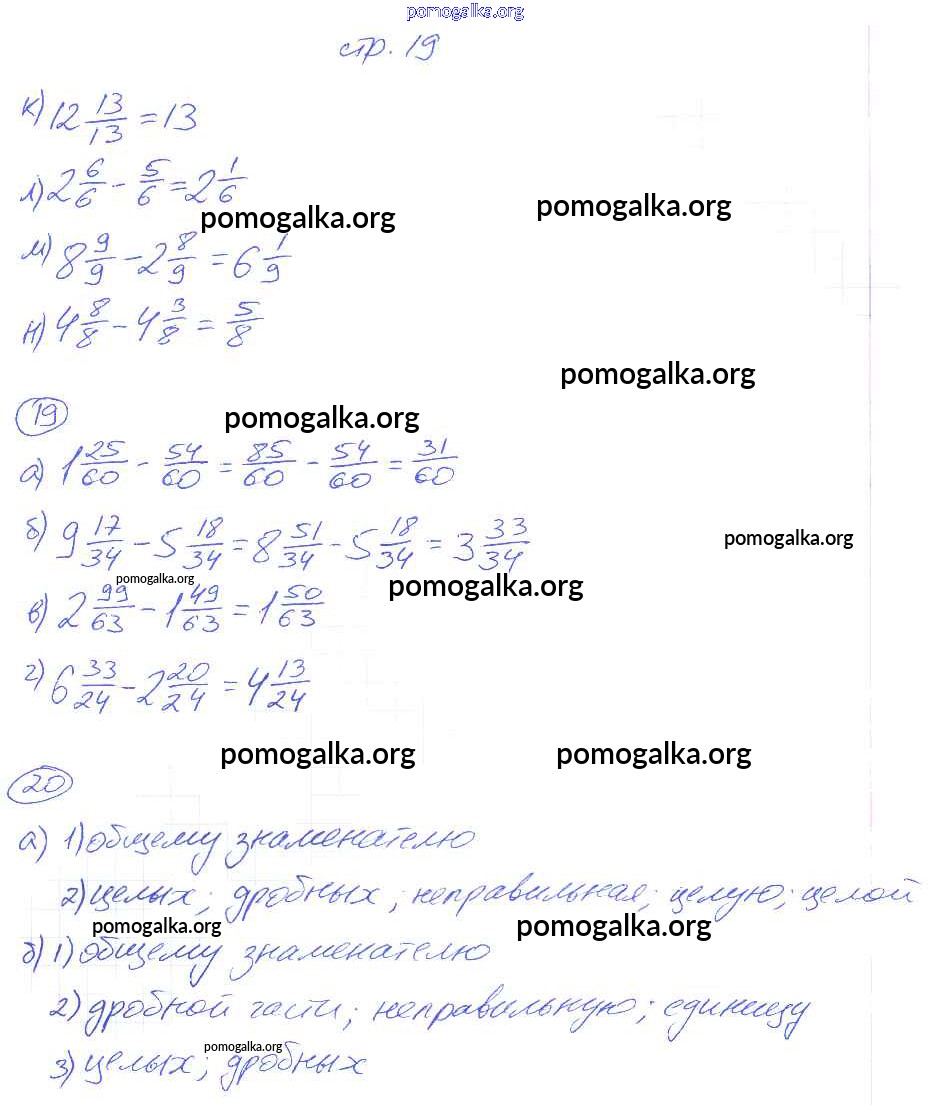 pomogalka.org
стр. 19
к) 12 13/13 = 13
л) 2 6/6 - 5/6 = 2 1/6
pomogalka.org pomogalka.org
м) 8 9/9 - 2 8/9 = 6 1/9
н) 4 8/8 - 4 3/8 = 5/8
pomogalka.org
19 pomogalka.org
а) 1 25/60 - 54/60 = 85/60 - 54/60 = 31/60
б) 9 17/34 - 5 18/34 = 8 51/34 - 5 18/34 = 3 33/34 pomogalka.org
pomogalka.org pomogalka.org
в) 2 99/63 - 1 49/63 = 1 50/63
г) 6 33/24 - 2 20/24 = 4 13/24
pomogalka.org pomogalka.org
20
а) 1) общему знаменателю
2) целых; дробных; неправильная; целую; целой
pomogalka.org pomogalka.org
б) 1) общему знаменателю
2) дробной части; неправильную; единицу
pomogalka.org
3) целых; дробных